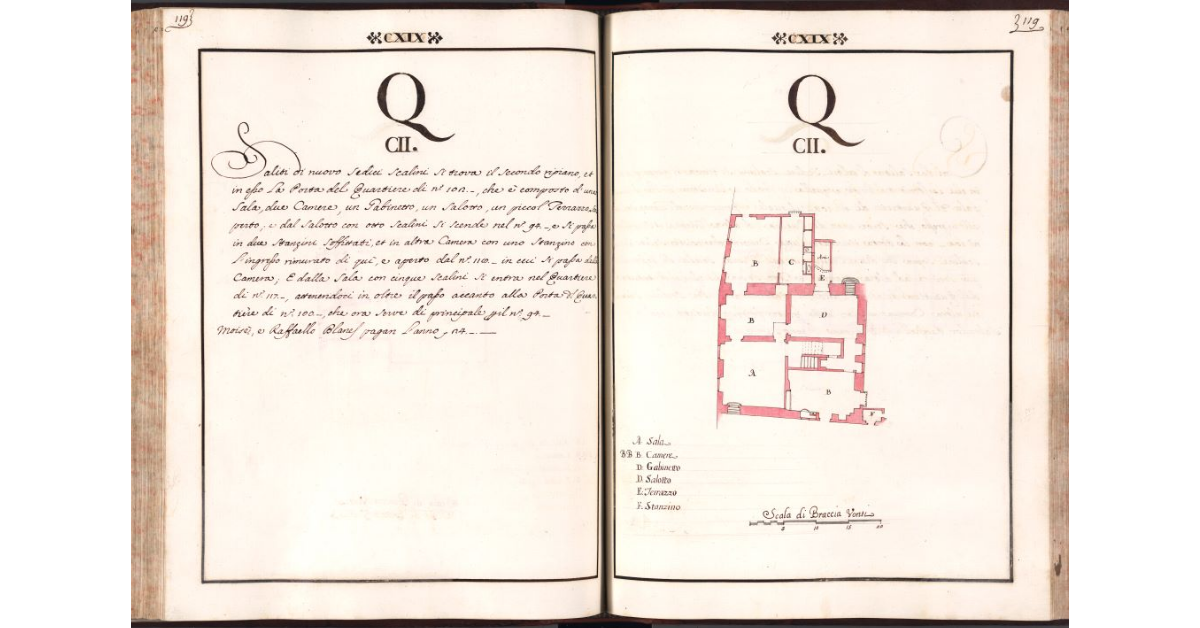 119
CXIX
Q
CII.
Saliti di nuovo Sedici Scalini si trova il Secondo ripiano, et
in esso La Porta del Quartiere di n.º 102._, che è composto d'una
Sala, due Camere, un Gabinetto, un Salotto, un piccol Terrazzo
perto, e dal Salotto con otto Scalini si Scende nel n.º 94._ e si passa
in due Stanzini Soffittati, et in altra Camera con uno Stanzino con
L'ingresso rimurato di qui, e aperto dal n.º 110._ in cui si passa dalla
Camera; E dalla Sala con cinque Scalini si entra nel Quartiere
di n.º 112._, attenendoci in oltre il passo accanto alla Porta d
tiere di n.º 100._, che ora serve di principale pil n.º 94._
Moisè, e Raffaello Blanes pagan L'anno 74._
119
CXIX
Q
CII.
B
C
E
B
D
A
B
F
A Sala
BB B Camere
D Gabinetto
D Salotto
E. Terrazzo
F. Stanzino
Scala di Braccia Venti
5 10 15 20